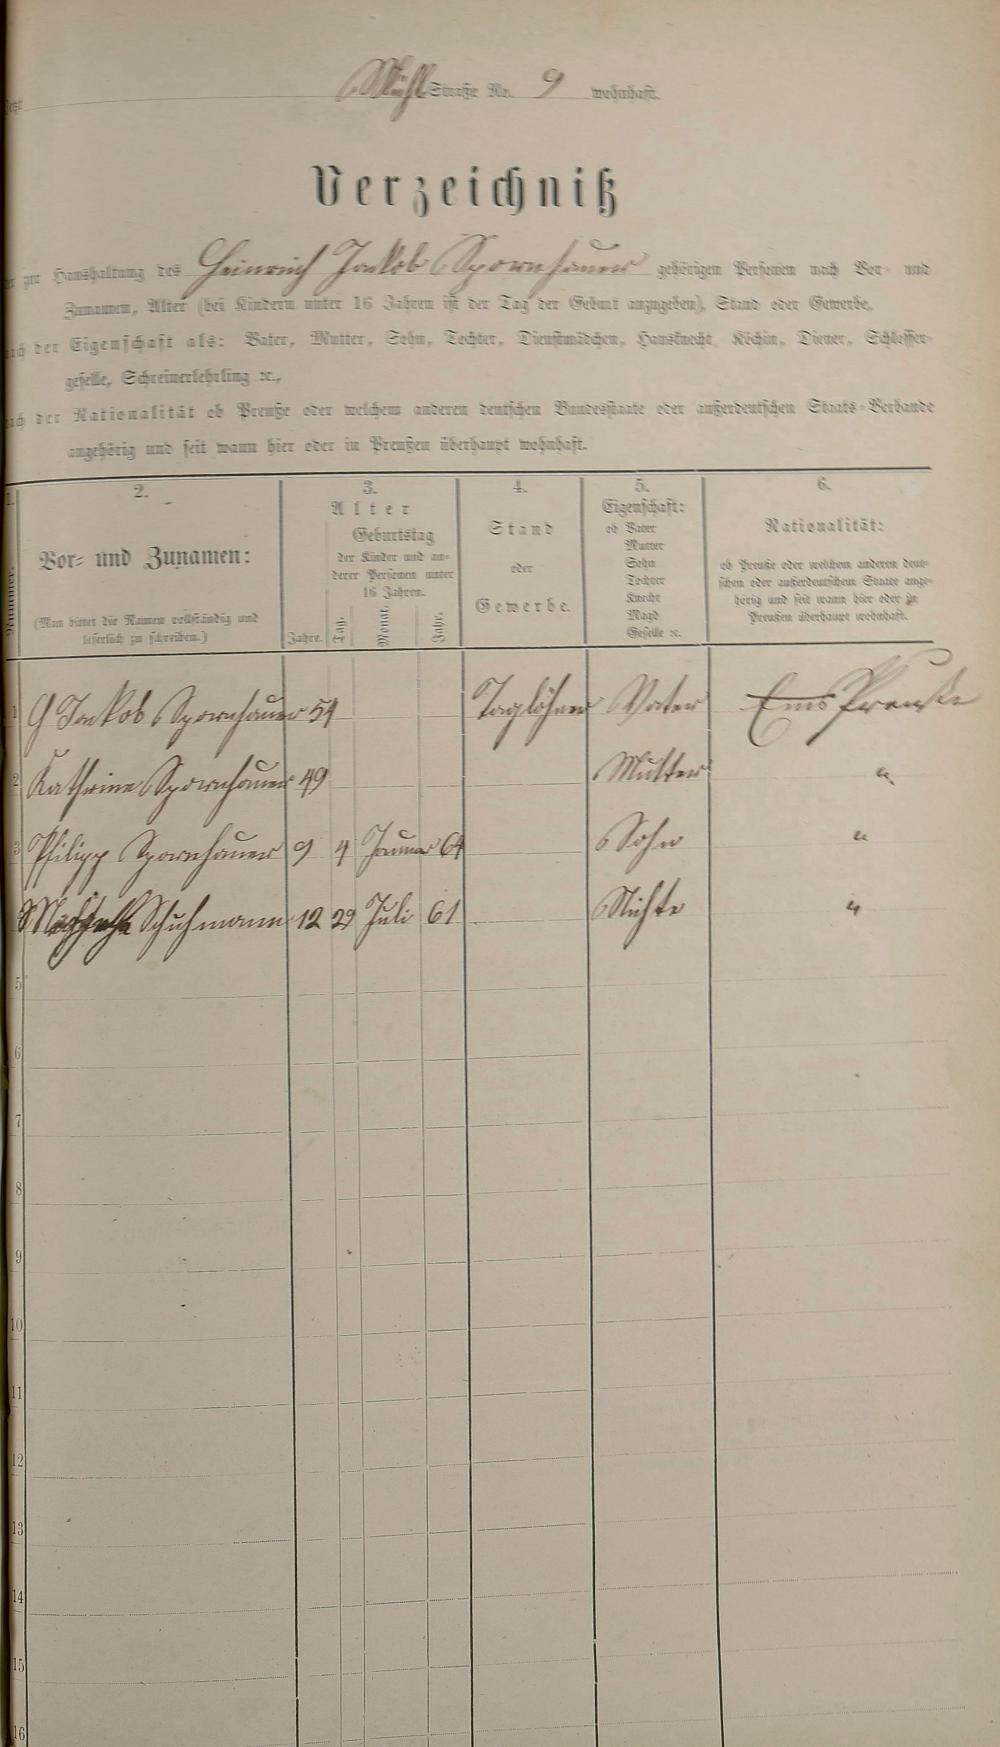 Jetzt Mühl Straße No. 9 wohnhaft.
Verzeichniß
der zur Haushaltung des Heinrich Jackob Spornhauer gehörigen Personen nach Vor- und
Zunamen, Alter (bei Kindern unter 16 Jahren ist der Tag der Geburt anzugeben), Stand oder Gewerbe,
nach der Eigenschaft als: Vater, Mutter, Sohn, Tochter, Dienstmädchen, Hausknecht, Köchin, Diener, Schlosser-
geselle, Schreinerlehrling ꝛc.,
nach der Nationalität ob Preuße oder welchem anderen deutschen Bundesstaate oder außerdeutschen Staats-Verbande
angehörig und seit wann hier oder in Preußen überhaupt wohnhaft.
1. 2. 3. 4. 5. 6.
Nummer.
Vor- und Zunamen:
(Man bittet die Namen vollständig und
leserlich zu schreiben.)
Alter
Jahre.
Geburtstag
der Kinder und an-
derer Personen unter
16 Jahren.
Tag. Monat. Jahr.
Stand
oder
Gewerbe.
Eigenschaft:
ob Vater
Mutter
Sohn
Tochter
Knecht
Magd
Geselle ꝛc.
Nationalität:
ob Preuße oder welchem anderen deut-
schen oder außerdeutschen Staate ange-
hörig und seit wann hier oder in
Preußen überhaupt wohnhaft.
1 H Jackob Spornhauer 54 Taglöhner Vater Ems Preuße
2 Kathrina Spornhauer 49 Mutter "
3 Philipp Spornhauer 9 4 Januar 64 Sohn "
Schuhmann 12 29 Juli 61 Nichte "
5
6
7
8
9
10
11
12
13
14
15
16